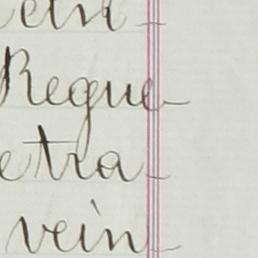 Regue
etra
vein